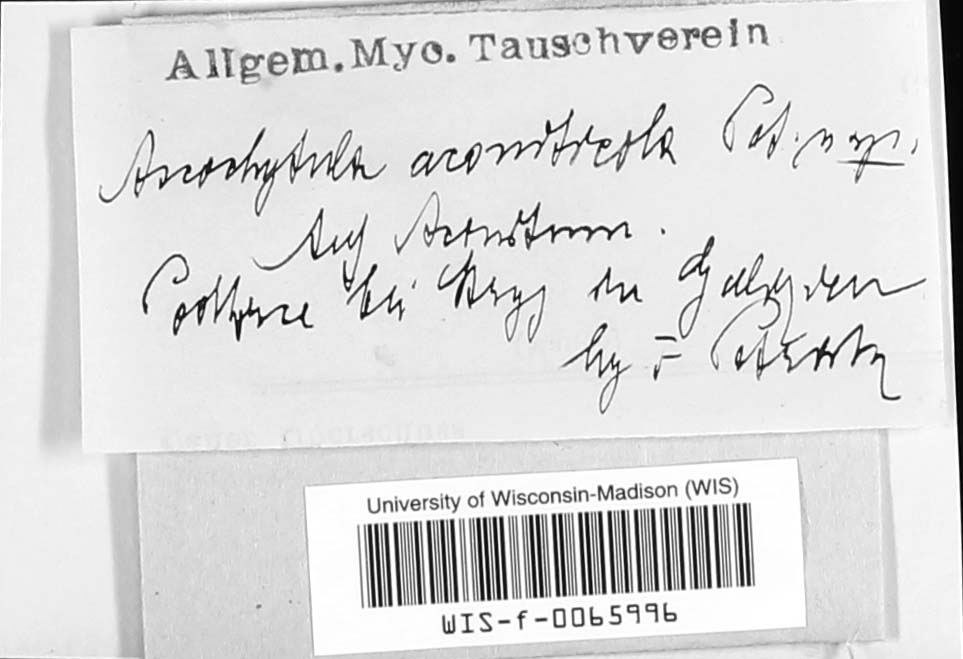 Allgem. Myc. Tauschverein
Ascochytula aconiticola Pet. n sp.
Auf Aconitum.
bei Stryj in Galizien
lg F Petrak
University of Wisconsin-Madison (WIS)
WIS-f-0065996